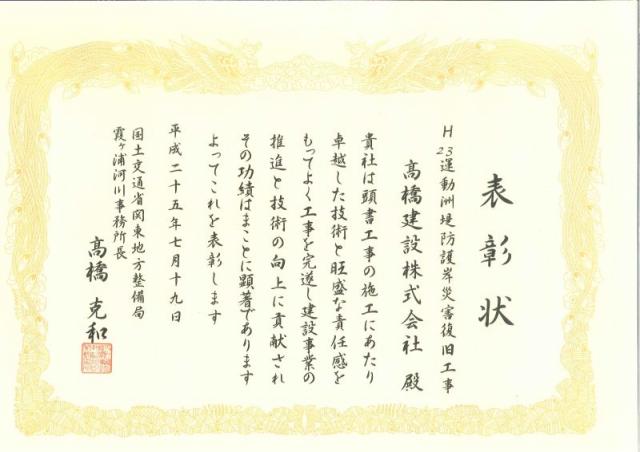 表彰状
H23運動洲堤防護岸災害復旧工事
高橋建設株式会社 殿
貴社は頭書工事の施工にあたり
卓越した技術と旺盛な責任感を
もってよく工事を完遂し建設事業の
推進と技術の向上に貢献され
その功績はまことに顕著であります
よってこれを表彰します
平成二十五年七月十九日
国土交通省関東地方整備局
霞ヶ浦河川事務所長
高橋 克和